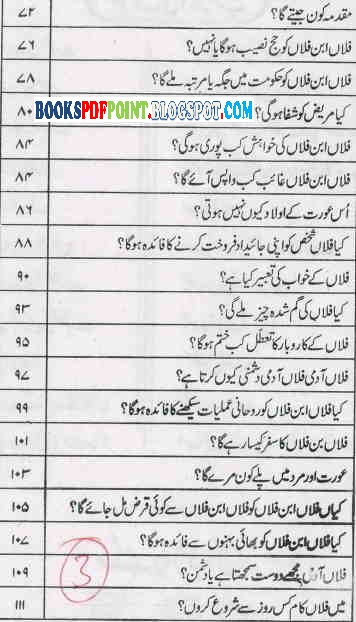 مقدمہ کون جیتے گا؟ ۷۲
فلاں ابن فلاں کو حج نصیب ہوگا یا نہیں؟ ۷۶
فلاں ابن فلاں کو حکومت میں جگہ یا مرتبہ ملے گا؟ ۷۸
BOOKSPDFPOINT.BLOGSPOT.COM
کیا مریض کو شفا ہوگی؟ ۸۰
فلاں ابن فلاں کی خواہش کب پوری ہوگی؟ ۸۴
فلاں ابن فلاں غائب کب واپس آئے گا؟ ۸۴
اُس عورت کے اولاد کیوں نہیں ہوتی؟ ۸۶
کیا فلاں شخص کو اپنی جائیداد فروخت کرنے کا فائدہ ہوگا؟ ۸۸
فلاں کے خواب کی تعبیر کیا ہے؟ ۹۰
کیا فلاں کی گم شدہ چیز ملے گی؟ ۹۳
فلاں کے کاروبار کا تعطل کب ختم ہوگا؟ ۹۵
فلاں آدمی فلاں آدمی دشمنی کیوں کرتا ہے؟ ۹۷
کیا فلاں ابن فلاں کو روحانی عملیات سیکھنے کا فائدہ ہوگا؟ ۹۹
فلاں بن فلاں کا سفر کیسا رہے گا؟ ۱۰۱
عورت اور مرد میں پہلے کون مرے گا؟ ۱۰۳
کیاں فلاں ابن فلاں کو فلاں ابن فلاں سے کوئی قرض مل جائے گا؟ ۱۰۵
کیا فلاں ابن فلاں کو بھائی بہنوں سے فائدہ ہوگا؟ ۱۰۷
فلاں آدمی مجھے دوست سمجھتا ہے یا دشمن؟ ۱۰۹
میں فلاں کام کس روز سے شروع کروں؟ ۱۱۱
3